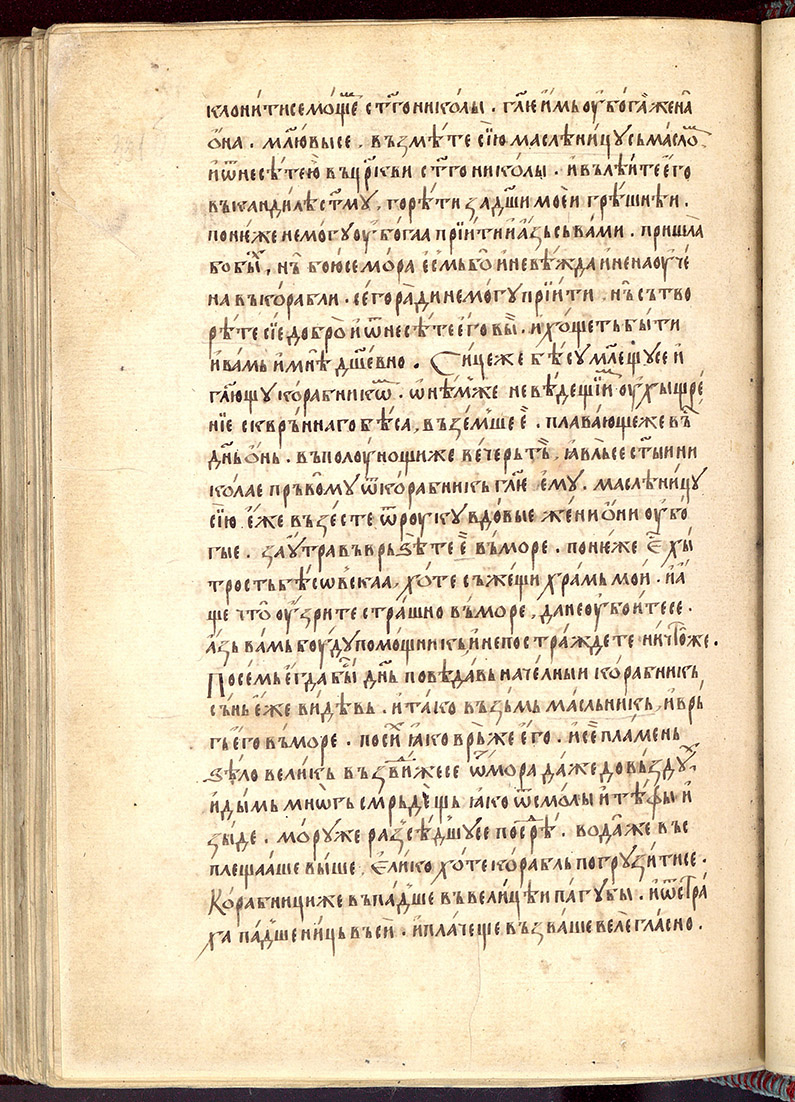 клонити се моще ст҃го николы . гл҃ю имь оубогаа жена
ѻна . мл҃ю вы се . възмѣте сїю маслѣницу сь масло
и ѿнесѣте ю въ цр҃кви ст҃го николы . и вълѣите его
въ кандилѣ ст҃му , горѣти за дш҃и моеи грѣшнѣи .
понюже не могу оубогаа прїити и азь сь вами . пришла
бо бых , нъ бою се мора есмь бо и невѣжда и ненаоуче
на въ корабли . сего ради не могу прїити . нъ сътво
рѣте сїе добро и ѿнесѣте его вы . и хощеть быти
и вамь и мнѣ дш҃евно . Сице же бѣсу мл҃ещу се и
гл҃ющу корабником . ѡнѣм же не ведещїим оухыщре
нїе сквръннаго бѣса , въземше е . плавающе же въ
дн҃ь ѻнь . въ полоунощи же вечерь тъ , ꙗвль се ст҃ыи ни
колае пръвому ѿ корабникь гл҃ю ему . маслѣницу
сїю еже възесте ѿ роукку вдовые жени ѻни оубо
гые . заутра въврьѕѣте е въ море . понюже е хы
трость бѣсовскаа , хоте съжещи храмь мои . и а
ще что оузрите страшно въ море , да не оубоите се .
азь вамь боуду помощникь и не постраждете ничтоже .
По семь егда бы дн҃ь поведавь начелныи корабникь
сънь еже видѣвь . и тако възьмь масльникь , и врь
гь его въ море . по сих ꙗко връже его . и се пламень
ѕѣло великь въздвиже се ѿ мора даже до въздух
и дымь мнѡгь смрьдещь ꙗко ѿ смолы и тѣѳы и
зыде . мору же разсѣдшу се посрѣ . вода же въс
плещааше выше , елико хоте корабль погрузити се .
Корабници же въпадше въ велицѣи пагубы . и ѿ стра
ха падше ниць въси . и плачеще възваше велегласно .